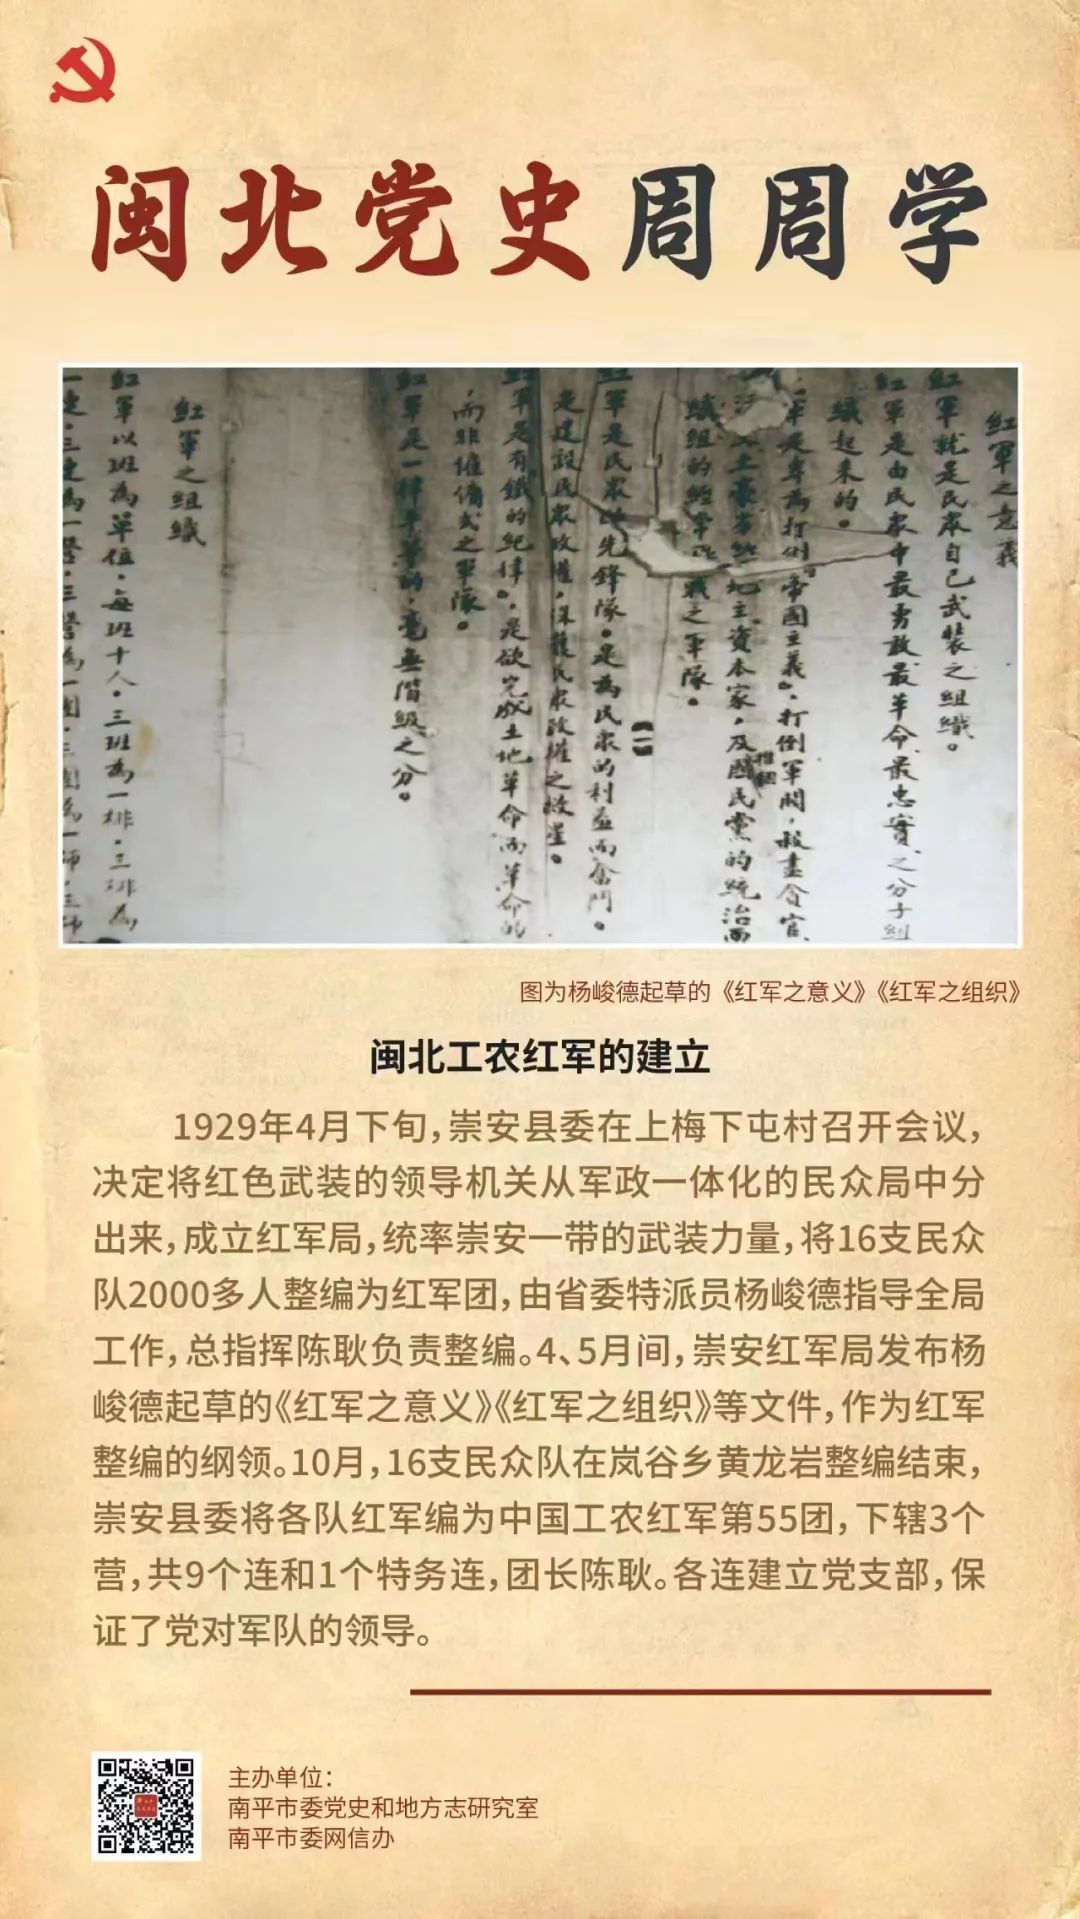 闽北党史周周学
紅軍之意義
紅軍就是民眾自己武裝之組織。
紅軍是由民眾中最勇敢最革命最忠實之分子組
織起來的。
軍是專為打倒「帝國主義」,打倒軍閥,殺盡貪官
土豪劣紳地主資本家,及推翻國民黨的統治而
織組的經常
戰之軍隊。
(二)
紅軍是民眾的先鋒隊。是為民眾的利益而奮鬥。
是建設民眾政權,保護民眾政權之救星。
紅軍是有鐵的紀律。是欲完成土地革命而革命的
而非僱傭式之軍隊。
紅軍是一律平等的,毫無階級之分。
紅軍之組織
紅軍以班為單位,每班十人。三班為一排。三排為
一連,三連為一營,三營為一團,三團為一師,三師
图为杨峻德起草的《红军之意义》《红军之组织》
闽北工农红军的建立
1929年4月下旬,崇安县委在上梅下屯村召开会议,
决定将红色武装的领导机关从军政一体化的民众局中分
出来,成立红军局,统率崇安一带的武装力量,将16支民众
队2000多人整编为红军团,由省委特派员杨峻德指导全局
工作,总指挥陈耿负责整编。4、5月间,崇安红军局发布杨
峻德起草的《红军之意义》《红军之组织》等文件,作为红军
整编的纲领。10月,16支民众队在岚谷乡黄龙岩整编结束,
崇安县委将各队红军编为中国工农红军第55团,下辖3个
营,共9个连和1个特务连,团长陈耿。各连建立党支部,保
证了党对军队的领导。
主办单位:
南平市委党史和地方志研究室
南平市委网信办